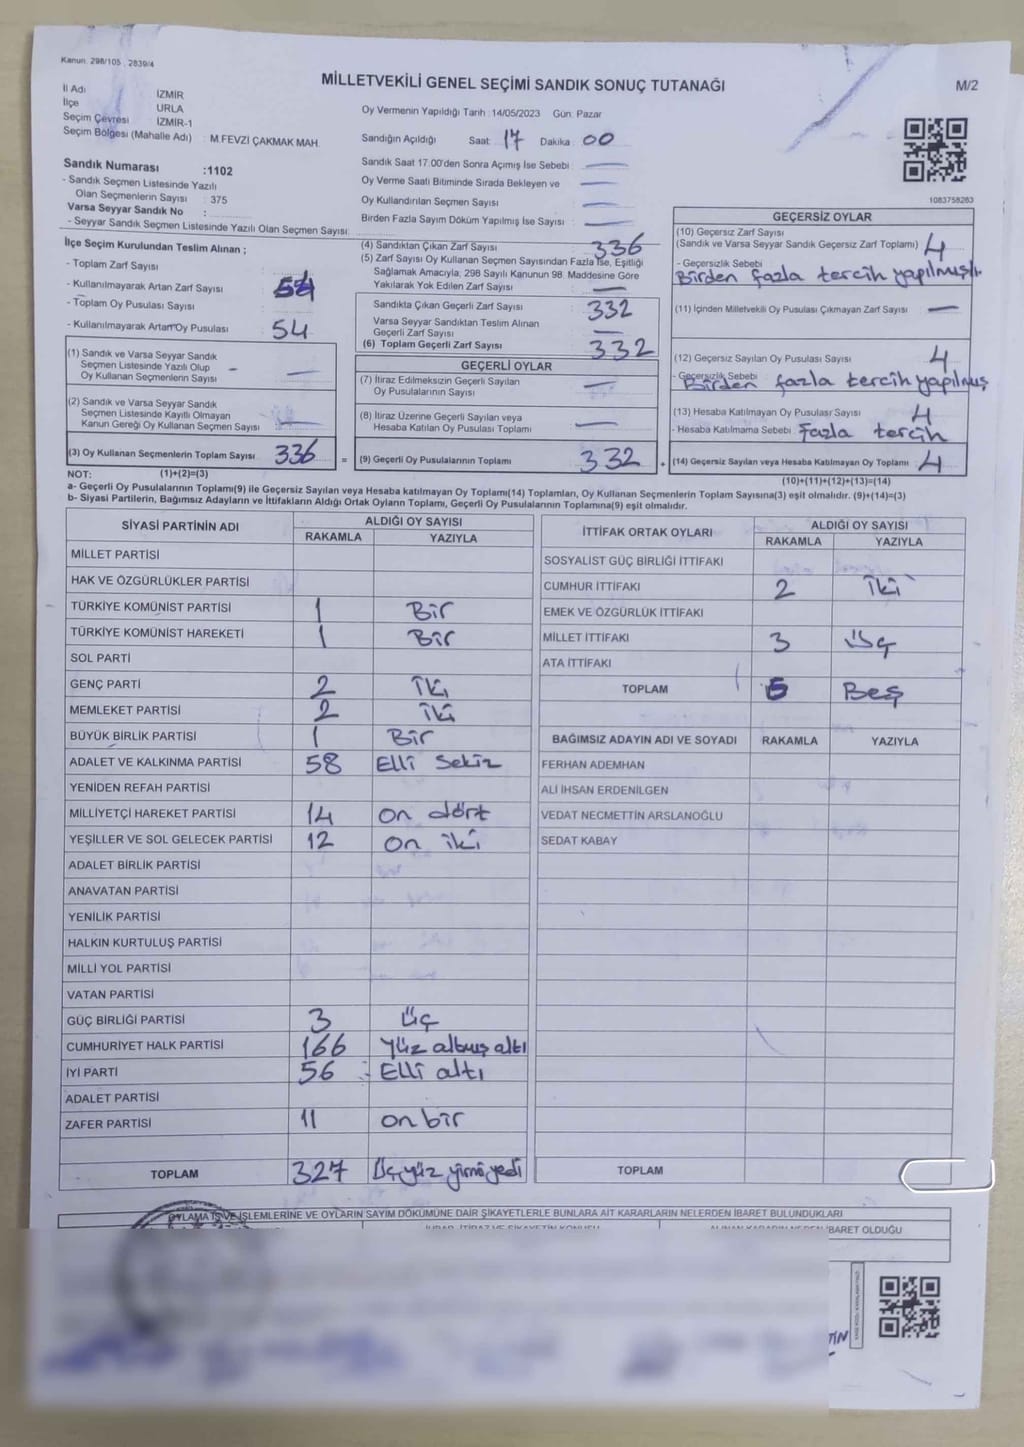 Kanun. 298/105 , 2839/4
MİLLETVEKİLİ GENEL SEÇİMİ SANDIK SONUÇ TUTANAĞI
M/2
İl Adı İZMİR
İlçe URLA
Seçim Çevresi İZMİR-1
Seçim Bölgesi (Mahalle Adı) : M.FEVZİ ÇAKMAK MAH.
Sandık Numarası :1102
- Sandık Seçmen Listesinde Yazılı
Olan Seçmenlerin Sayısı : 375
Varsa Seyyar Sandık No :
- Seyyar Sandık Seçmen Listesinde Yazılı Olan Seçmen Sayısı:
Oy Vermenin Yapıldığı Tarih :14/05/2023 Gün: Pazar
Sandığın Açıldığı Saat: 17 Dakika: 00
Sandık Saat 17:00'den Sonra Açımış İse Sebebi : —
Oy Verme Saati Bitiminde Sırada Bekleyen ve —
Oy Kullandırılan Seçmen Sayısı : —
Birden Fazla Sayım Döküm Yapılmış İse Sayısı : —
1083758263
İlçe Seçim Kurulundan Teslim Alınan ;
- Toplam Zarf Sayısı :
- Kullanılmayarak Artan Zarf Sayısı : 54
- Toplam Oy Pusulası Sayısı :
- Kullanılmayarak Artan Oy Pusulası : 54
(1) Sandık ve Varsa Seyyar Sandık
Seçmen Listesinde Yazılı Olup —
Oy Kullanan Seçmenlerin Sayısı
(2) Sandık ve Varsa Seyyar Sandık
Seçmen Listesinde Kayıtlı Olmayan
Kanun Gereği Oy Kullanan Seçmen Sayısı —
(3) Oy Kullanan Seçmenlerin Toplam Sayısı : 336 =
(4) Sandıktan Çıkan Zarf Sayısı : 336
(5) Zarf Sayısı Oy Kullanan Seçmen Sayısından Fazla İse, Eşitliği
Sağlamak Amacıyla, 298 Sayılı Kanunun 98. Maddesine Göre
Yakılarak Yok Edilen Zarf Sayısı : —
Sandıkta Çıkan Geçerli Zarf Sayısı : 332
Varsa Seyyar Sandıktan Teslim Alınan
Geçerli Zarf Sayısı : —
(6) Toplam Geçerli Zarf Sayısı : 332
GEÇERLİ OYLAR
(7) İtiraz Edilmeksizin Geçerli Sayılan
Oy Pusulalarının Sayısı : —
(8) İtiraz Üzerine Geçerli Sayılan veya
Hesaba Katılan Oy Pusulası Toplamı : —
(9) Geçerli Oy Pusulalarının Toplamı : 332 +
GEÇERSİZ OYLAR
(10) Geçersiz Zarf Sayısı
(Sandık ve Varsa Seyyar Sandık Geçersiz Zarf Toplamı) : 4
- Geçersizlik Sebebi :
Birden fazla tercih yapılmıştı.
(11) İçinden Milletvekili Oy Pusulası Çıkmayan Zarf Sayısı : —
(12) Geçersiz Sayılan Oy Pusulası Sayısı : 4
- Geçersizlik Sebebi :
Birden fazla tercih yapılmış
(13) Hesaba Katılmayan Oy Pusulası Sayısı : 4
- Hesaba Katılmama Sebebi : Fazla tercih
(14) Geçersiz Sayılan veya Hesaba Katılmayan Oy Toplamı : 4
NOT: (1)+(2)=(3)
(10)+(11)+(12)+(13)=(14)
a- Geçerli Oy Pusulalarının Toplamı(9) ile Geçersiz Sayılan veya Hesaba katılmayan Oy Toplamı(14) Toplamları, Oy Kullanan Seçmenlerin Toplam Sayısına(3) eşit olmalıdır. (9)+(14)=(3)
b- Siyasi Partilerin, Bağımsız Adayların ve İttifakların Aldığı Ortak Oyların Toplamı, Geçerli Oy Pusulalarının Toplamına(9) eşit olmalıdır.
SİYASİ PARTİNİN ADI ALDIĞI OY SAYISI
RAKAMLA YAZIYLA
MİLLET PARTİSİ
HAK VE ÖZGÜRLÜKLER PARTİSİ
TÜRKİYE KOMÜNİST PARTİSİ 1 Bir
TÜRKİYE KOMÜNİST HAREKETİ 1 Bir
SOL PARTİ
GENÇ PARTİ 2 İki
MEMLEKET PARTİSİ 2 İki
BÜYÜK BİRLİK PARTİSİ 1 Bir
ADALET VE KALKINMA PARTİSİ 58 Elli Sekiz
YENİDEN REFAH PARTİSİ
MİLLİYETÇİ HAREKET PARTİSİ 14 on dört
YEŞİLLER VE SOL GELECEK PARTİSİ 12 on iki
ADALET BİRLİK PARTİSİ
ANAVATAN PARTİSİ
YENİLİK PARTİSİ
HALKIN KURTULUŞ PARTİSİ
MİLLİ YOL PARTİSİ
VATAN PARTİSİ
GÜÇ BİRLİĞİ PARTİSİ 3 üç
CUMHURİYET HALK PARTİSİ 166 Yüz altmış altı
İYİ PARTİ 56 Elli altı
ADALET PARTİSİ
ZAFER PARTİSİ 11 on bir
TOPLAM 327 Üç yüz yirmi yedi
İTTİFAK ORTAK OYLARI ALDIĞI OY SAYISI
RAKAMLA YAZIYLA
SOSYALİST GÜÇ BİRLİĞİ İTTİFAKI
CUMHUR İTTİFAKI 2 İki
EMEK VE ÖZGÜRLÜK İTTİFAKI
MİLLET İTTİFAKI 3 üç
ATA İTTİFAKI
TOPLAM 5 Beş
BAĞIMSIZ ADAYIN ADI VE SOYADI RAKAMLA YAZIYLA
FERHAN ADEMHAN
ALİ İHSAN ERDENİLGEN
VEDAT NECMETTİN ARSLANOĞLU
SEDAT KABAY
TOPLAM
OYLAMA İŞ VE İŞLEMLERİNE VE OYLARIN SAYIM DÖKÜMÜNE DAİR ŞİKAYETLERLE BUNLARA AİT KARARLARIN NELERDEN İBARET BULUNDUKLARI
İBARET OLDUĞU